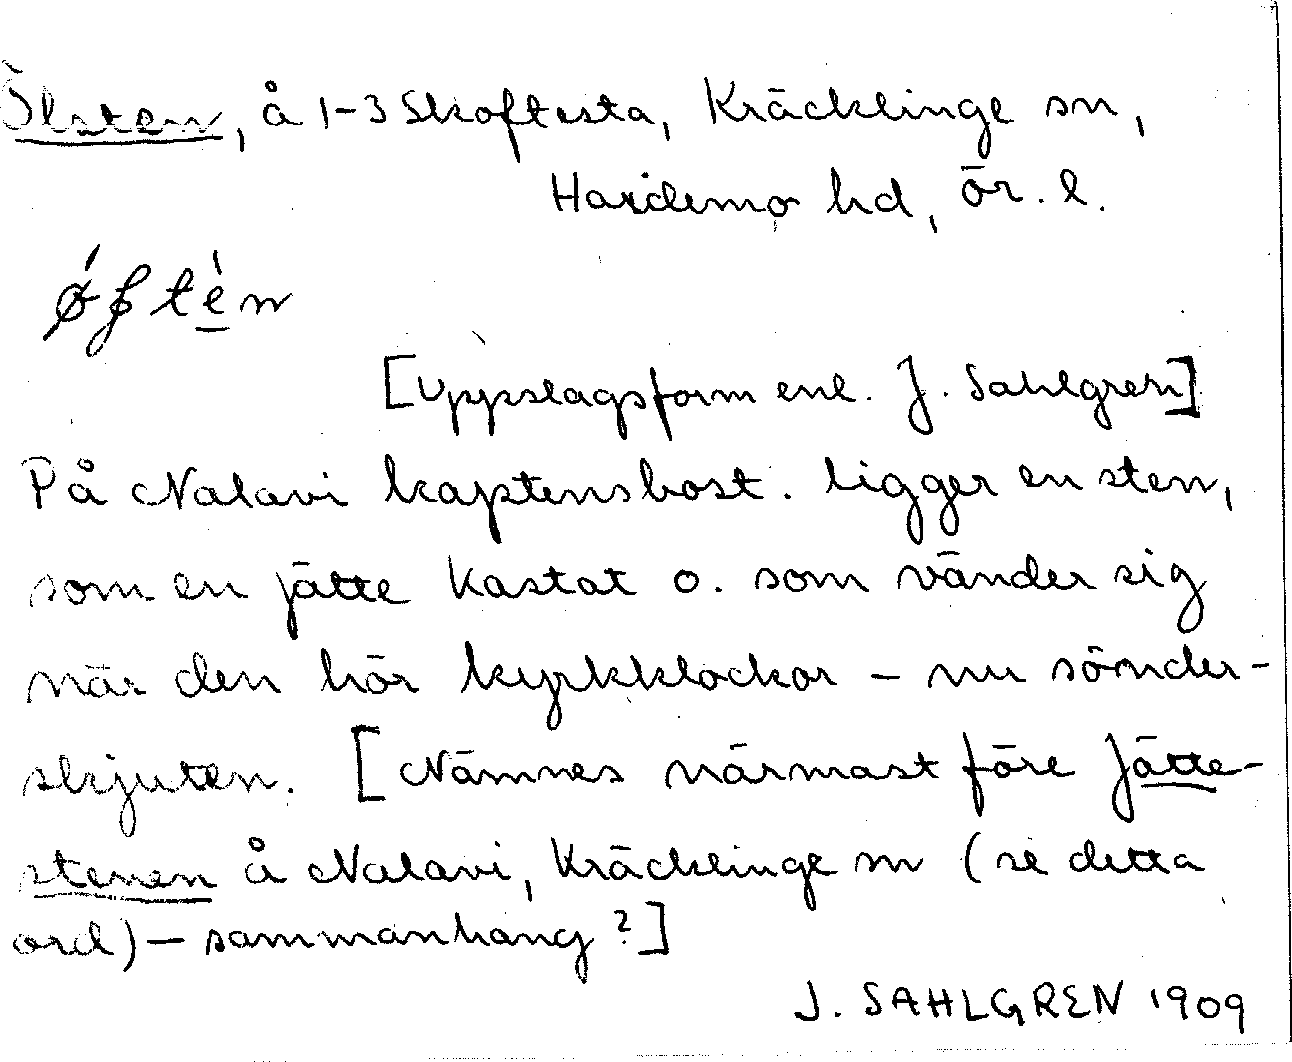 Ölsten, å 1-3 Skoftesta, Kräcklinge sn,
Hardemo hd, ör. l.
[Uppslagsform enl. J. Sahlgren]
På Nalavi kaptensbost. ligger en sten,
som en jätte kastat o. som vänder sig
när den hör kyrkklockor – nu sönder-
skjuten. [Nämnes närmast före Jätte-
stenen å Nalavi, Kräcklinge sn (se detta
ord) – sammanhang?]
J. SAHLGREN 1909